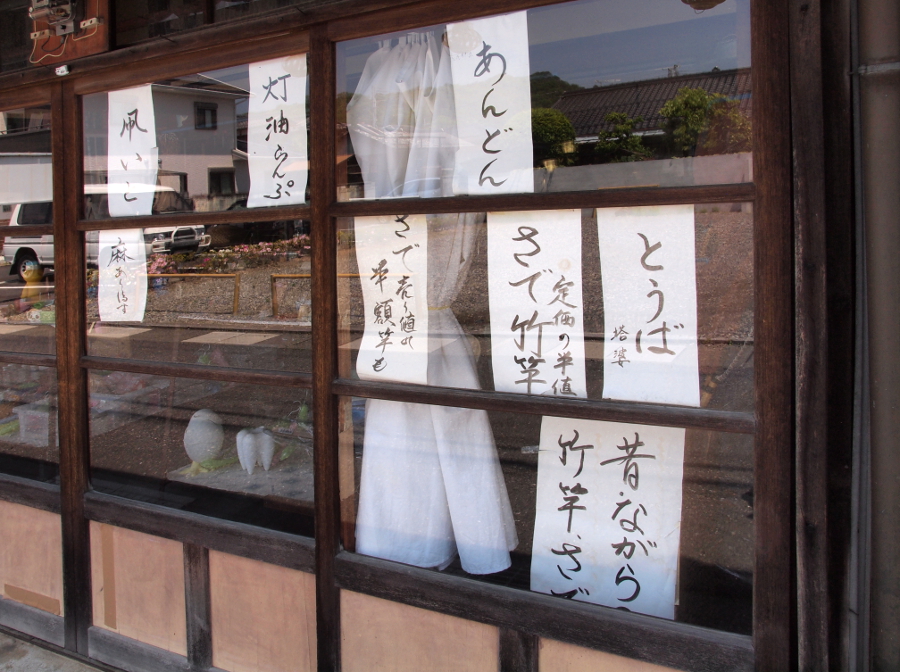 灯油らんぷ
凧いと
麻あります
あんどん
とうば
塔婆
さで竹竿
定価の半値
さで売り値の
半額竿も
昔ながら
竹竿.さで